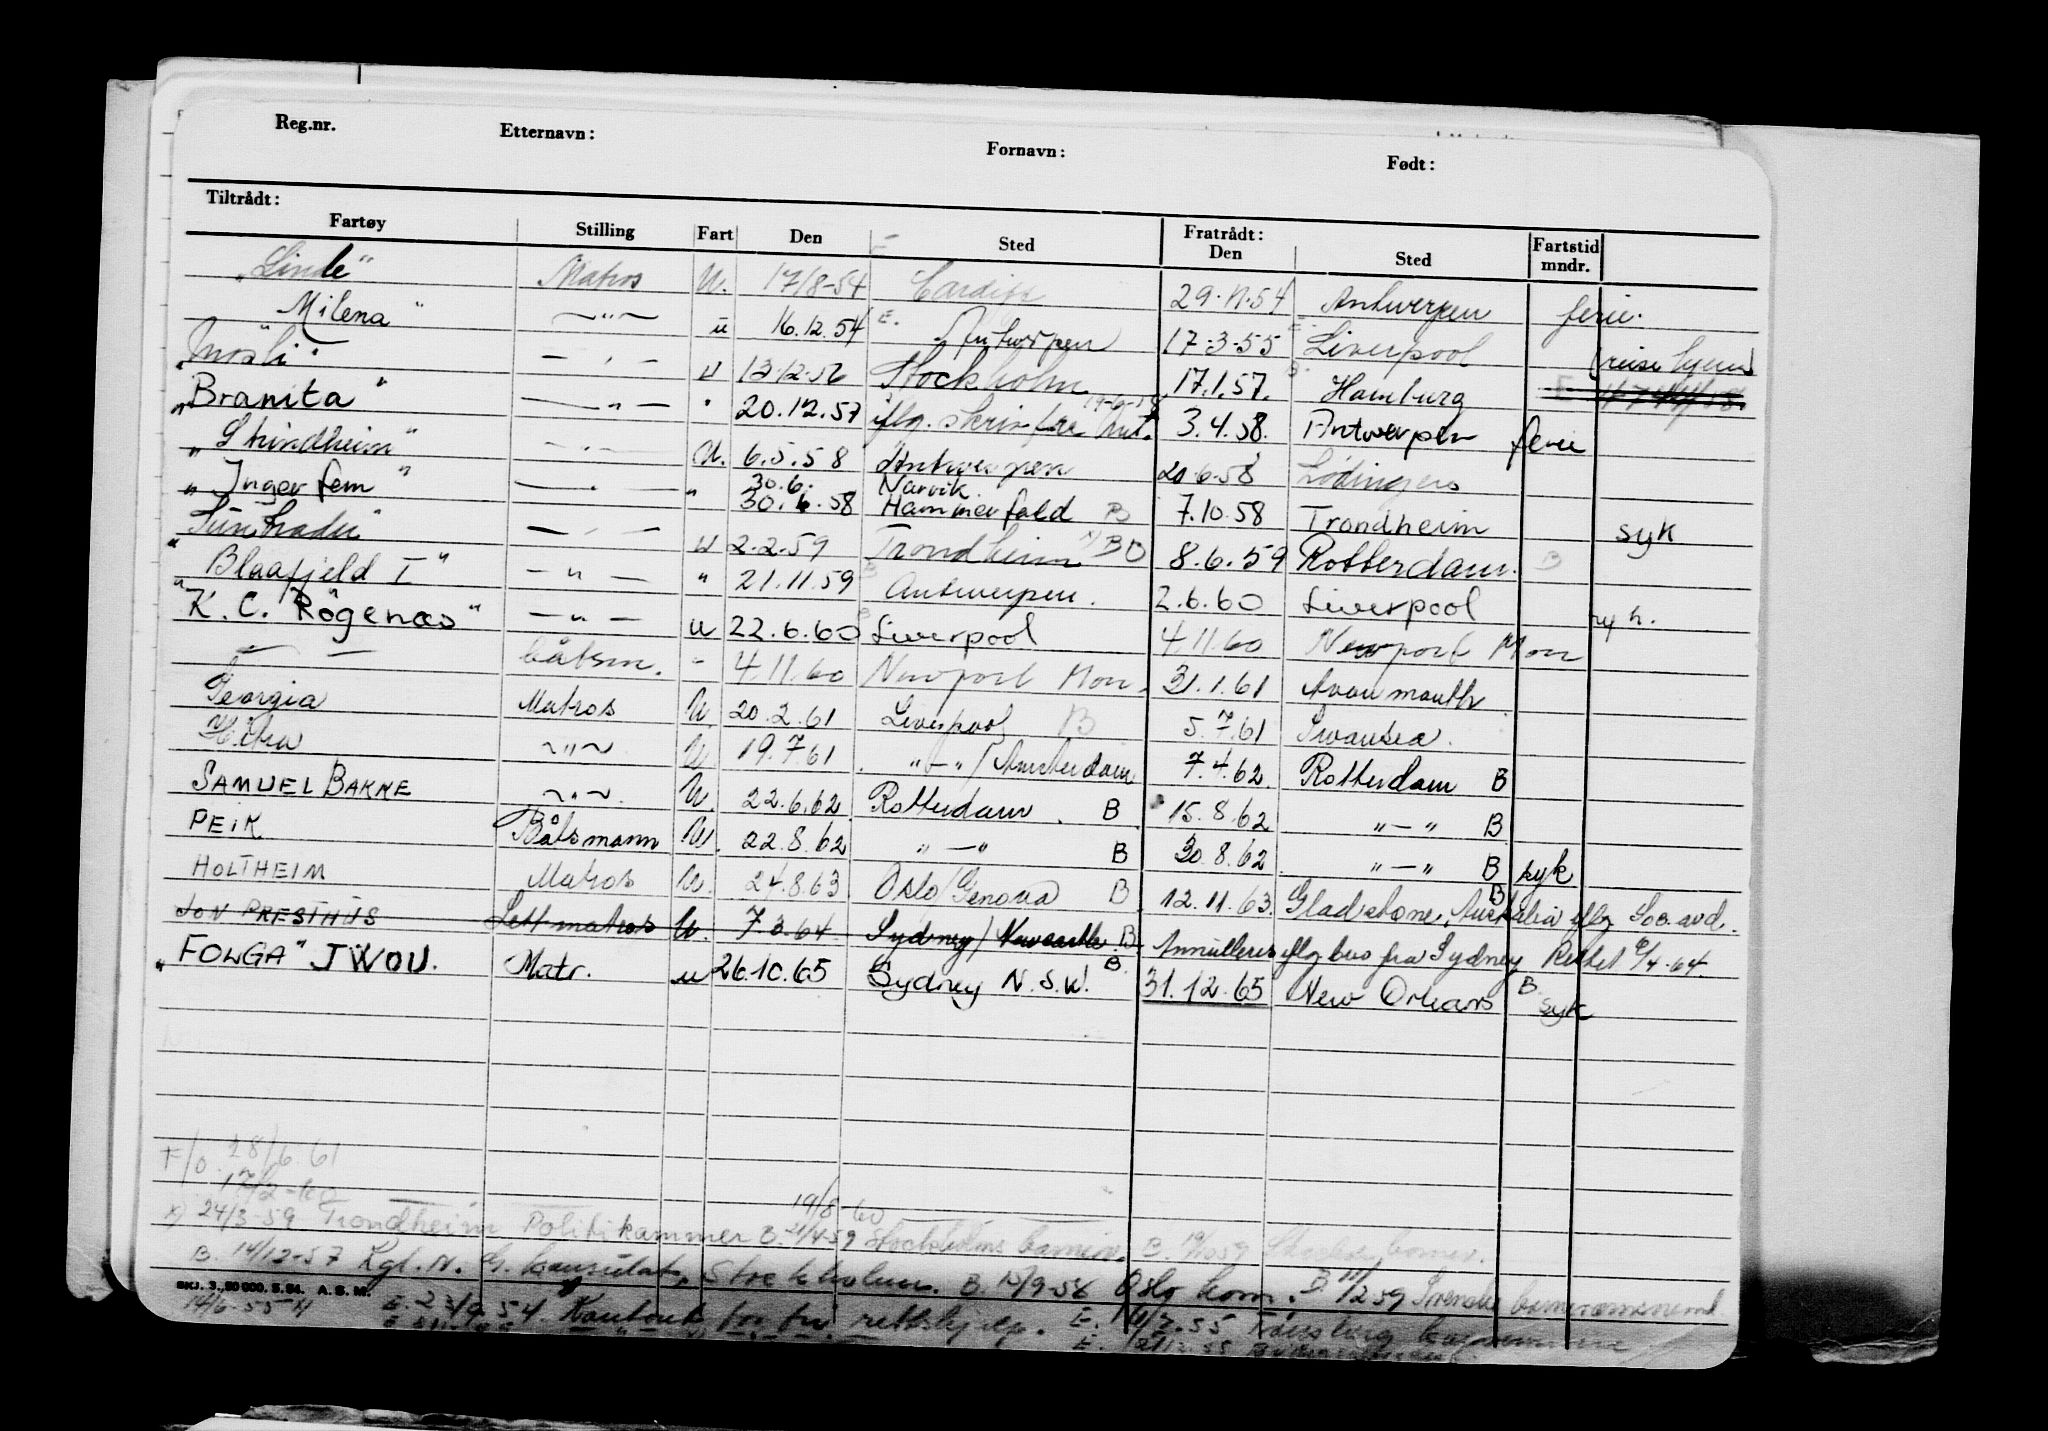 Reg.nr. Etternavn: Fornavn: Født:
Tiltrådt: Fratrådt:
Fartøy Stilling Fart Den Sted Den Sted Fartstid mndr.
"Linde" Matros U. 17/8-54 Cardiff 29.11.54 Antwerpen ferie.
Milena" —"— u 16.12.54 E. Antwerpen 17-3-55 Liverpool
"Mosli" — " — u 13.12.56 Stockholm 17.1.57. Hamburg
"Branita" — " — " 20.12.57 iflg. skriv fra Ant. 3.4.58. Antwerpen ferie
— " — U. 6.5.58 Antwerpen 20.6.58 Lødingen
30.6. Narvik
"Inger fem" — " — " 30.6.58 Hammerfest B 7.10.58 Trondheim syk
— " — u 2.2.59 Trondheim x) BO 8.6.59 Rotterdam. B
"Blaafjeld I" — " — " 21.11.59 B Antwerpen. 2.6.60 Liverpool
"K. C. Rogenæs" — " — u 22.6.60 Liverpool 4.11.60 Newport Mon
— — båtsm. " 4.11.60 Newport Mon. 31.1.61 Avonmouth
Georgia Matros U 20.2.61 Liverpool B 5.7.61 Swansea.
Hitra ~"~ U 19.7.61 "—"/Amsterdam 7.4.62. Rotterdam B
SAMUEL BAKKE ~"~. U. 22.6.62. Rotterdam. B 15.8.62 "—" B
PEIK Båtsmann U. 22.8.62 "—" B 30.8.62 "—" B syk
HOLTHEIM Matros U. 24.8.63 Oslo/Genova B 12.11.63. Gladstone, Australia B iflg Sos. avd.
JON PRESTHUS Lettmatros U. 7.3.64 Sydney/Newcastle. B. Annulleres iflg brev fra Sydney Rettet 6/4-64
"FOLGA" JWOU. Matr. u 26.10.65 Sydney N.S.W. B. 31.12.65 New Orleans B syk
F/O. 28/6.61
17/2-60 19/8-60
x) 24/3-59 Trondheim Politikammer B. 21/4-59 Stockholms
B. 14/12-57 Kgl. N. G. konsulat, Stockholm. B. 15/9-56 Oslo kom. B 11/12 59 Svenske
SKJ. 3., 50 000. 5. 54. A. S. M.
14/6-55 E. 23/9.54. Kontoret for fri rettshjelp. E. 11/2.55 Tønsberg